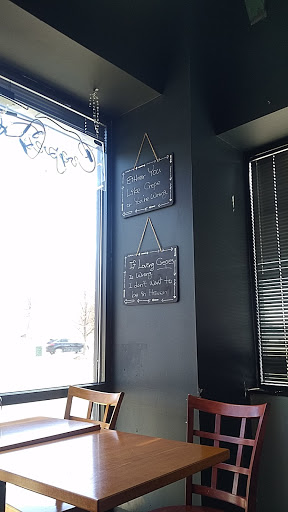 Either You
Like Crepe
or You're Wrong
If Loving Crepes
is Wrong
I don't want to
be in Heaven